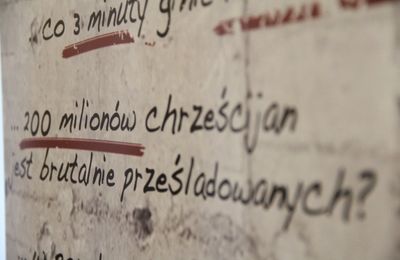 co 3 minuty ginie
... 200 milionów chrześcijan
jest brutalnie prześladowanych?